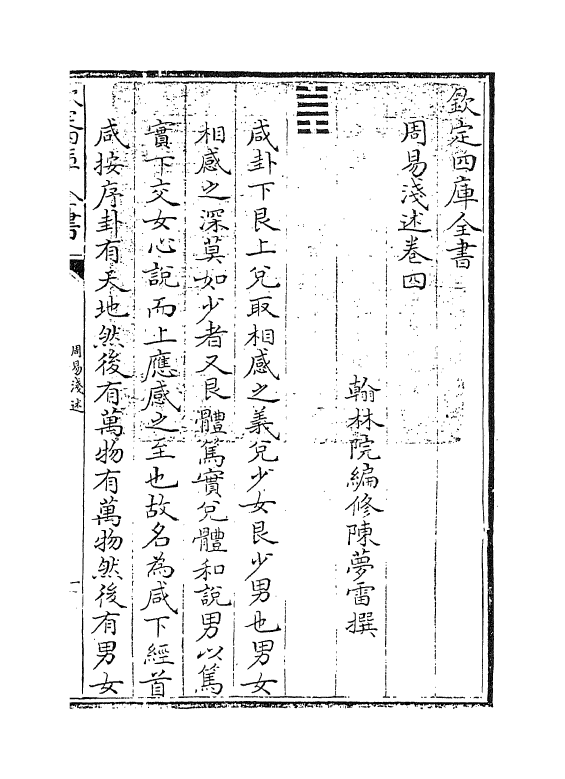 欽定四庫全書
周易淺述卷四
翰林院編修陳夢雷撰
䷞
咸卦下艮上兌取相感之義兌少女艮少男也男女
相感之深莫如少者又艮體篤實兌體和說男以篤
實下交女心說而上應感之至也故名為咸下經首
咸按序卦有天地然後有萬物有萬物然後有男女
欽定四庫全書
周易淺述
一